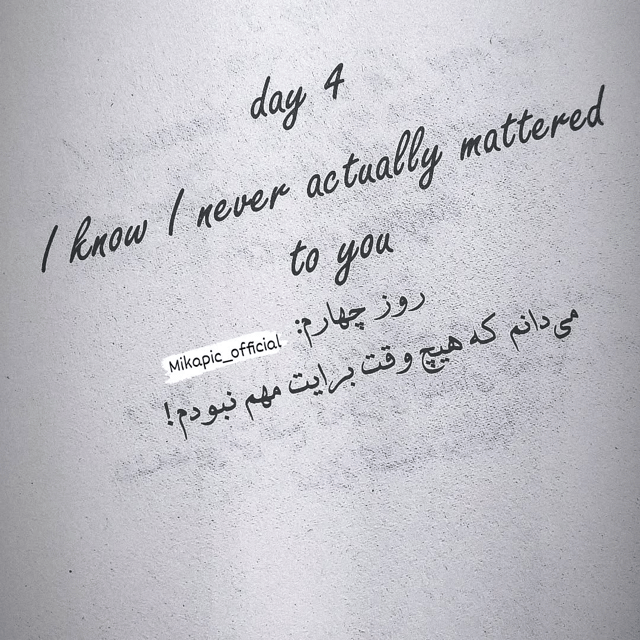 day 4
I know I never actually mattered
to you
روز چهارم:
Mikapic_official
می‌دانم که هیچ وقت برایت مهم نبودم!